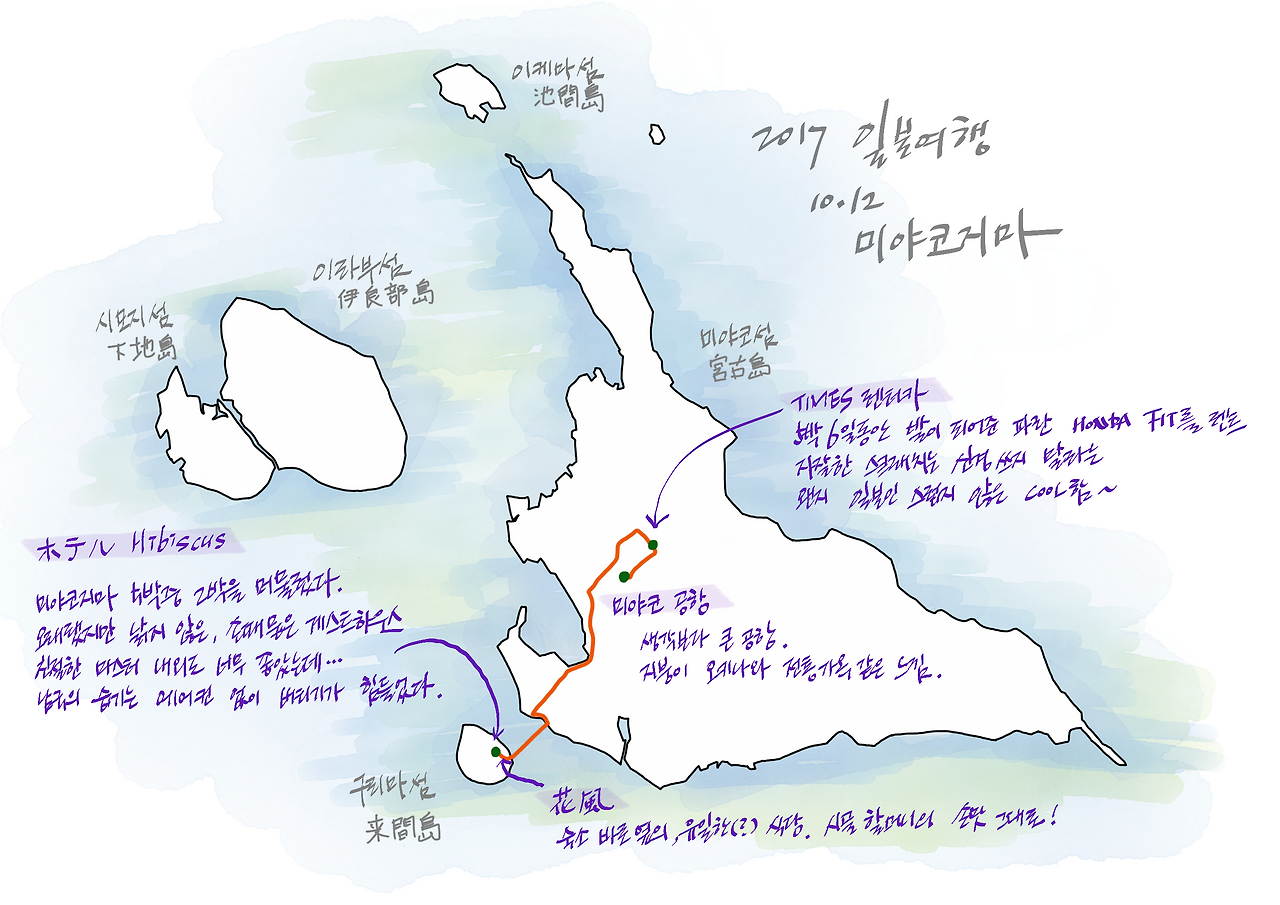 이케마섬
池間島
2017 일본여행
10.12
미야코지마
이라부섬
伊良部島
시모지섬
下地島
미야코섬
宮古島
TIMES 렌터카
5박 6일동안 발이 되어준 파란 HONDA FIT를 렌트
자잘한 설레치는 신경쓰지 말라는
왠지 일본인 스럽지 않은 COOL함~
ホテル Hibiscus
미야코지마 5박중 2박을 머물렀다.
오래됐지만 낡지 않은, 손때묻은 게스트하우스
친절한 마스터 내외도 너무 좋았는데...
남국의 습기는 에어컨 없이 버티기가 힘들었다.
미야코 공항
생각보다 큰 공항.
지붕이 오키나와 전통가옥같은 느낌.
쿠리마섬
来間島
花風
숙소 바로 옆의, 유일한(?) 식당. 시골 할머니의 손맛 그대로!